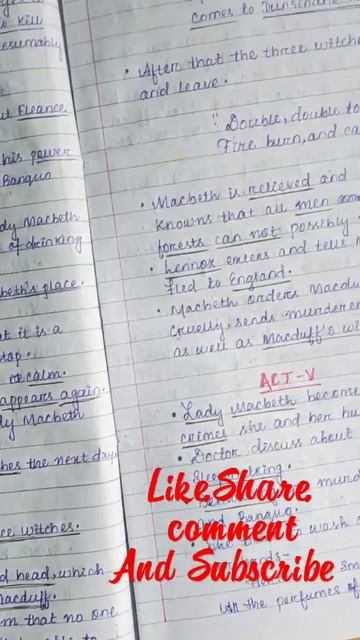 to kill
presumably
Fleance
his power
Banquo
Lady Macbeth
of drinking
Macbeth's place.
that it is a
stop.
calm.
appears again.
Lady Macbeth
the next day
witches.
head, which
Macduff.
him that no one
to
comes to Dunsinane
• After that the three witche
and leave.
" Double, double to
Fire burn, and ca
• Macbeth is relieved and
knowns that all men
forests can not possibly
• Lennox enters and tells
fled to England.
• Macbeth orders Macdu
cruelly, sends murderer
as well as Macduff's wi
ACT-V
• Lady Macbeth become
crimes she and her hu
• Doctor discuss about
Sleepwalking.
Banquo.
wash
All the perfumes of
Like Share
comment
And Subscribe